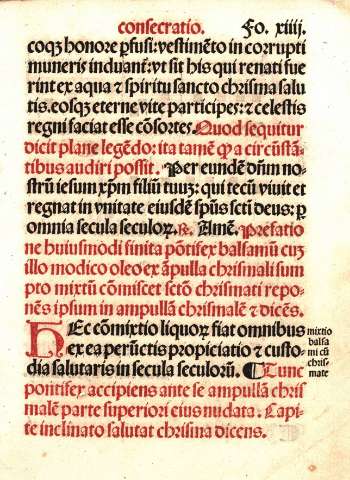 consecratio. Fo. xiiij.
coqꝫ honore ꝑfusi: vestimēto in corrupti
muneris induant̄: vt sit his qui renati fue
rint ex aqua ⁊ spiritu sancto chrisma salu
tis. eosqꝫ eterne vite participes: ⁊ celestis
regni faciat esse cōsortes. Quod sequitur
dicit plane legēdo: ita tamē ꝙ a circūstā⸗
tibus audiri possit. Per eundē dn̄m no⸗
strū iesum xp̄m filiū tuuꝫ: qui tecū viuit et
regnat in vnitate eiusdē sp̄us sc̄ti deus: ꝑ
omnia secula seculoꝝ. ℟. Amē. Prefatio
ne huiusmōdi finita pōtifex balsamū cuꝫ
illo modico oleo ex āpulla chrismali sum
pto mixtū cōmiscet sctō chrismati repo⸗
nēs ipsum in ampullā chrismalē ⁊ dicēs.
HEc cōmixtio liquoꝝ fiat omnibus
ex ea perūctis propiciatio ⁊ custo⸗
dia salutaris in secula seculorū. ¶ Tunc
pontifex accipiens ante se ampullā chris
malē parte superiori eius nudata. Capi⸗
te inclinato salutat chrisma dicens.
mixtio
balsa
mi cū
chris⸗
mate